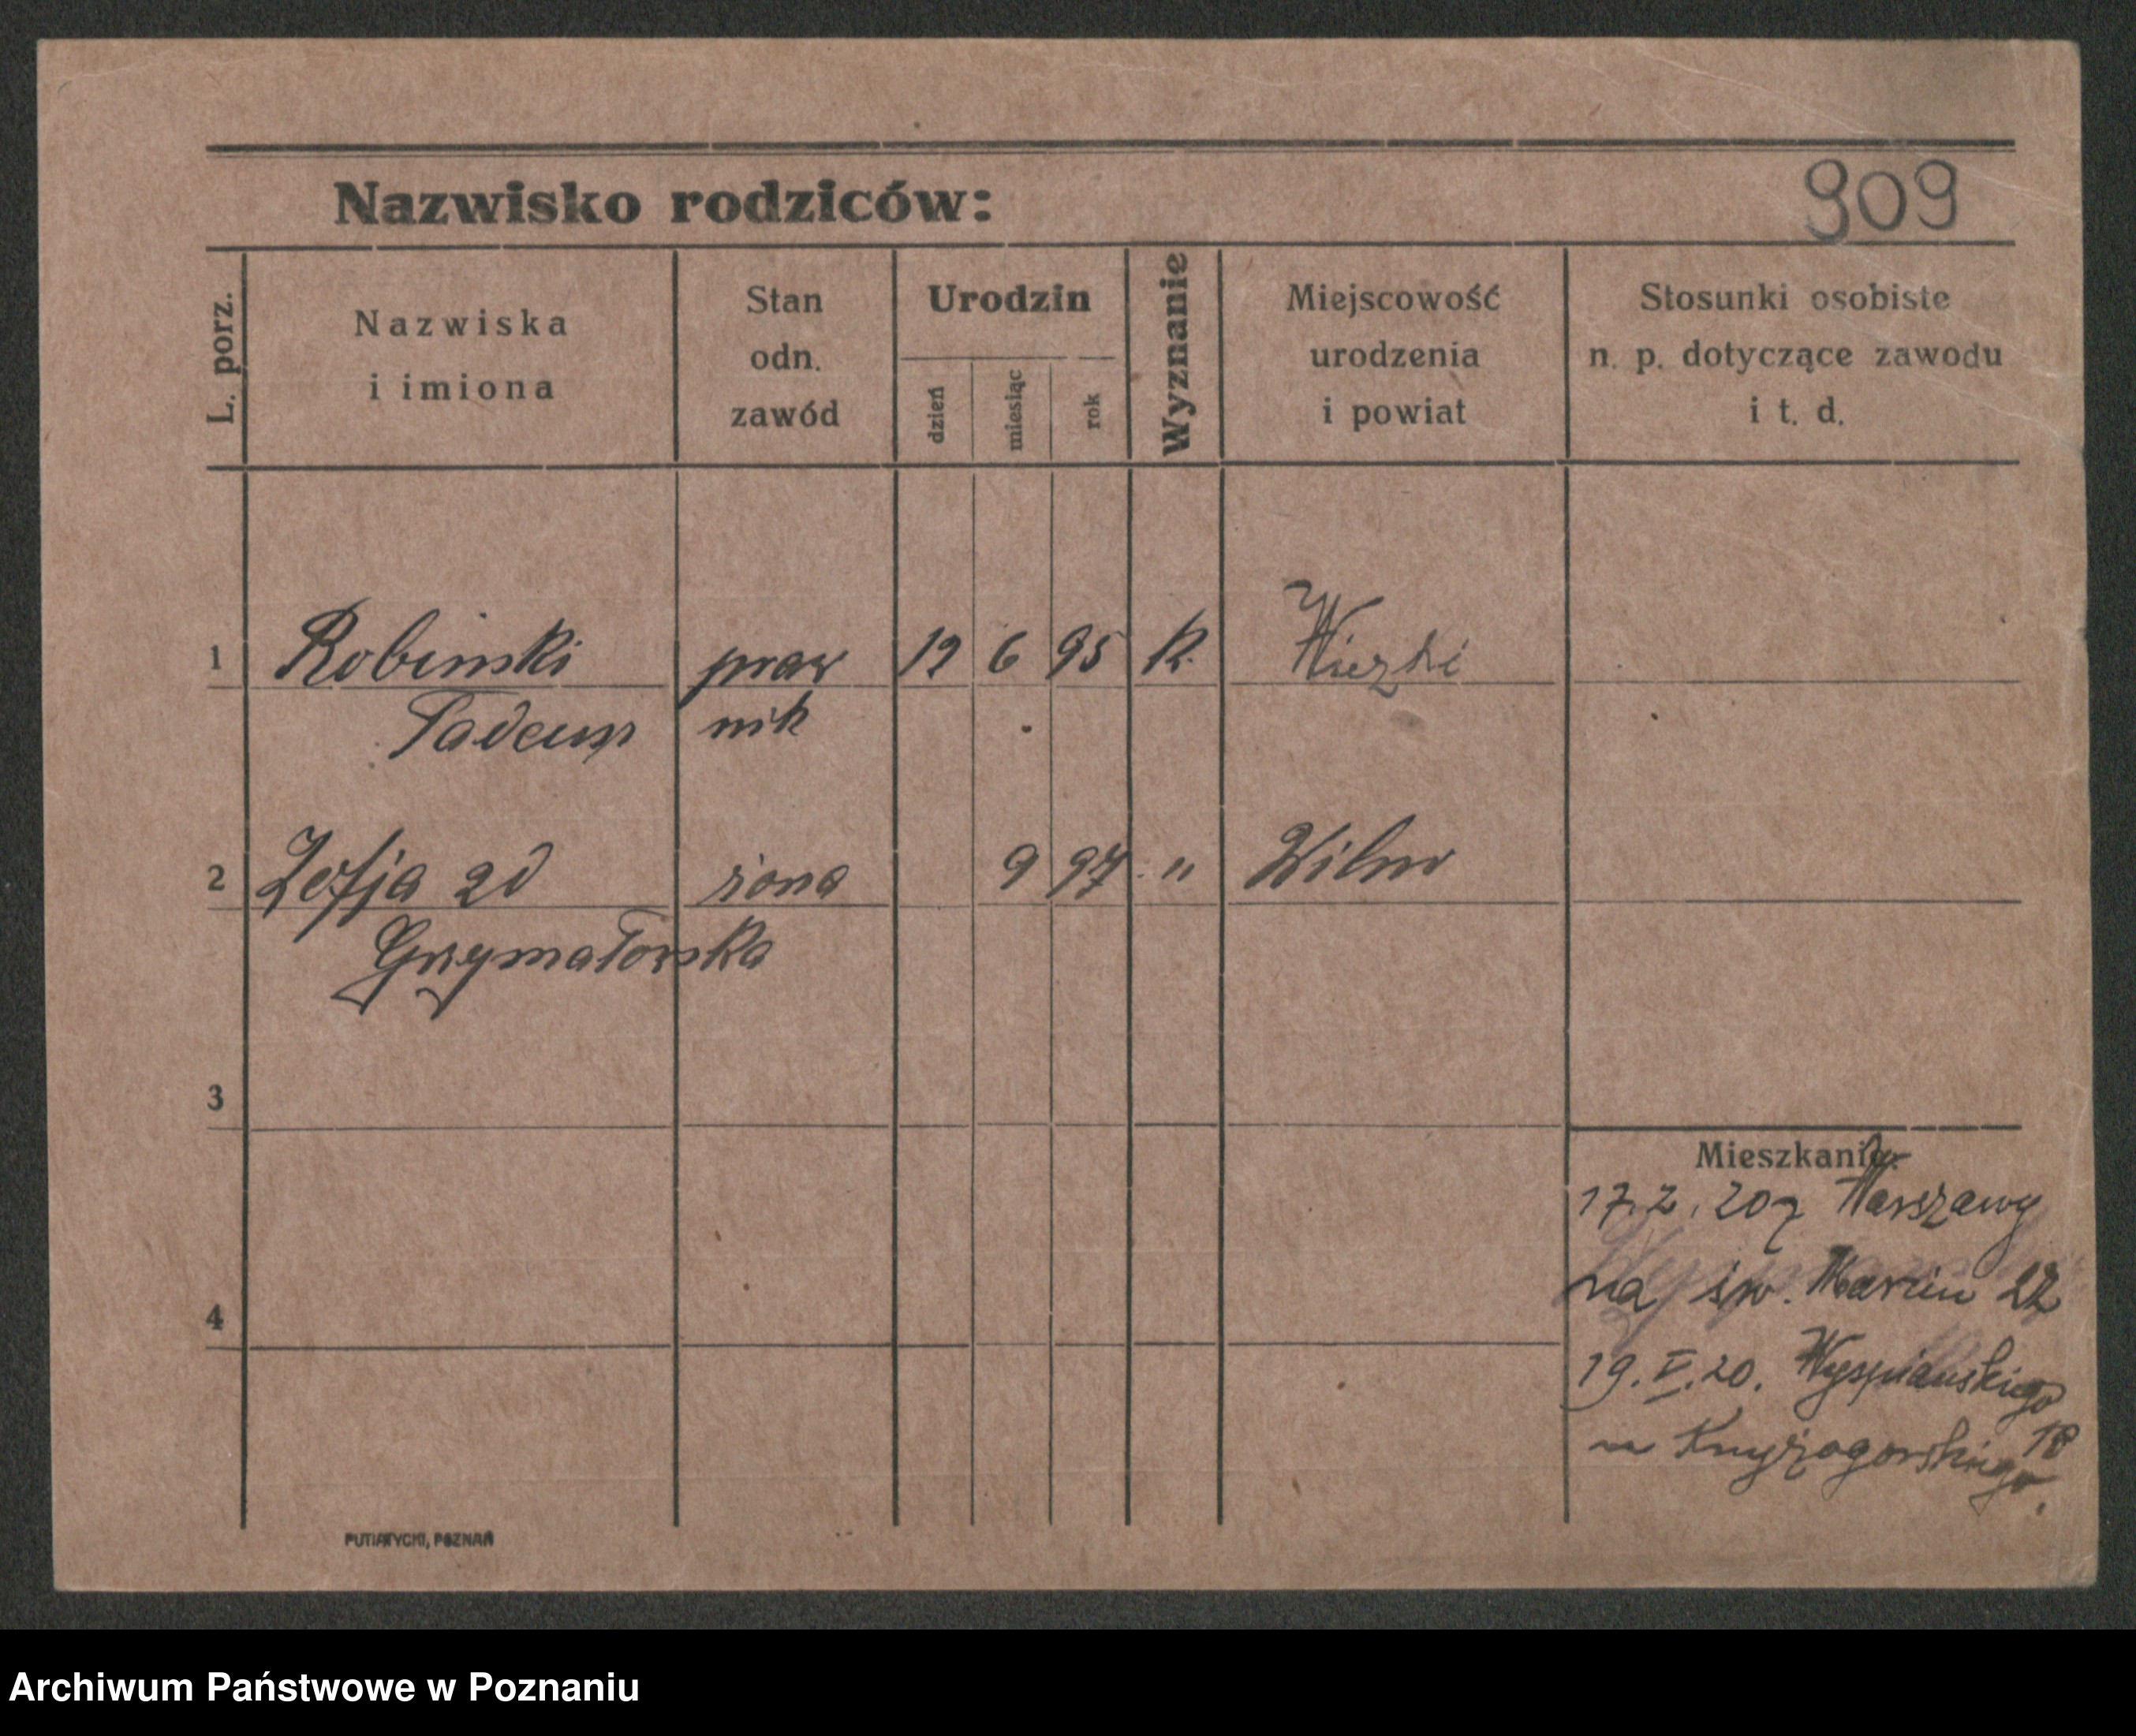 Nazwisko rodziców: 909
L. porz.
Nazwiska
i imiona
Stan
odn.
zawód
Urodzin
dzień
miesiąc
rok
Wyznanie
Miejscowość
urodzenia
i powiat
Stosunki osobiste
n. p. dotyczące zawodu
i t. d.
1 Robinski praw 19 6 95 K.
Tadeusz nik
2 Zofja zd żona 9 97 " Wilno
Grzymałowska
3
Mieszkania:
17.2.20 z Warszawy
na św. Marcin
4
19.V.20. Wyspiańskiego
18
PUTIATYCKI, POZNAŃ
Archiwum Państwowe w Poznaniu